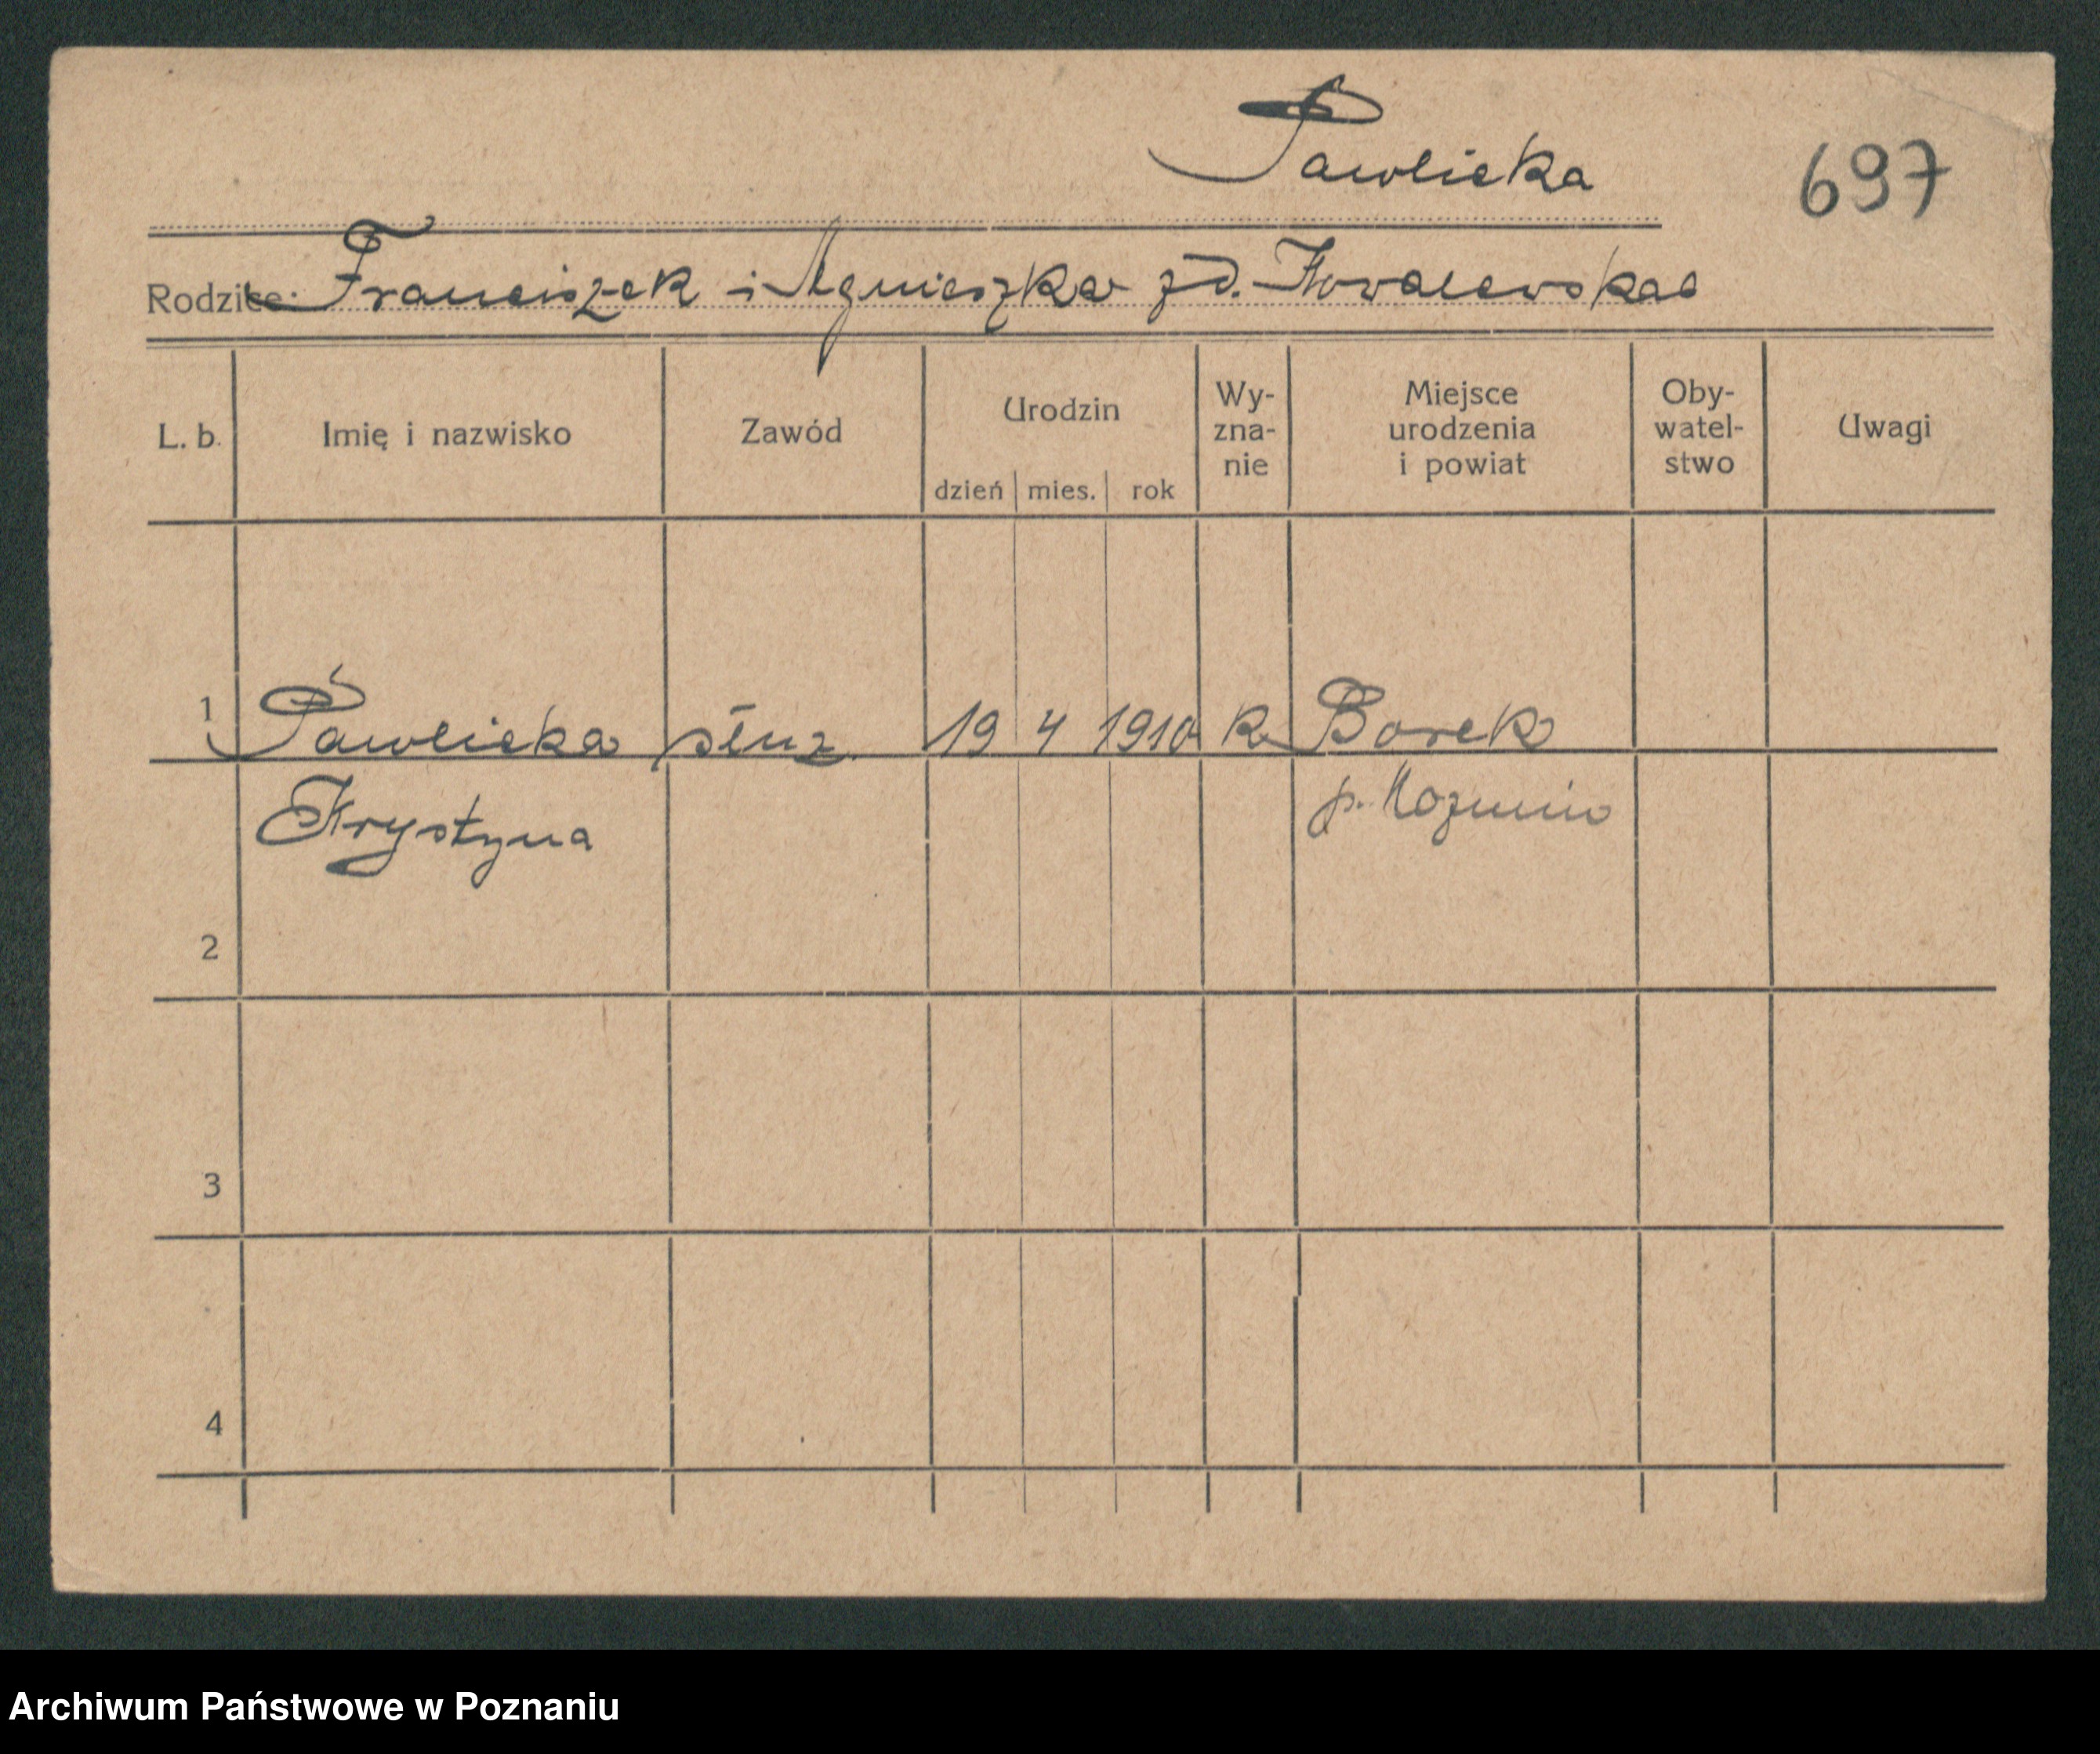 Pawlicka
697
Rodzice: Franciszek i Agnieszka zd. Kowalewska
L. b. Imię i nazwisko Zawód Urodzin dzień mies. rok Wy-zna-nie Miejsce urodzenia i powiat Oby-watel-stwo Uwagi
1 Pawlicka służ. 19 4 1910 k Borek
Krystyna p. Kozmin
2
3
4
Archiwum Państwowe w Poznaniu